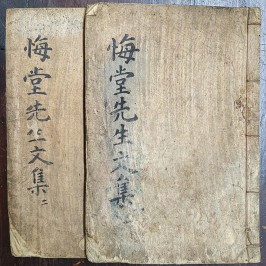 悔堂先生文集
悔堂先生文集二